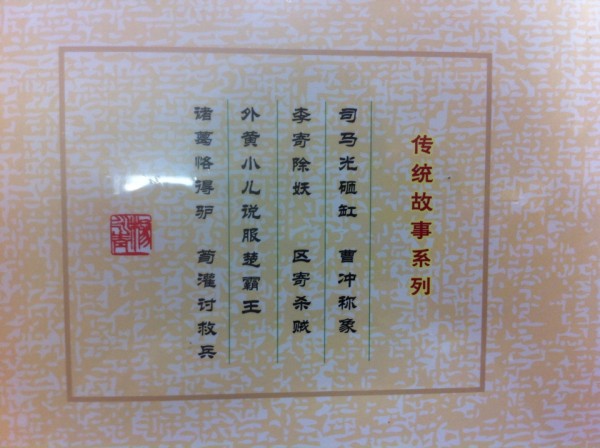 传统故事系列
司马光砸缸 曹冲称象
李寄除妖 区寄杀贼
外黄小儿说服楚霸王
诸葛恪得驴 荀灌讨救兵